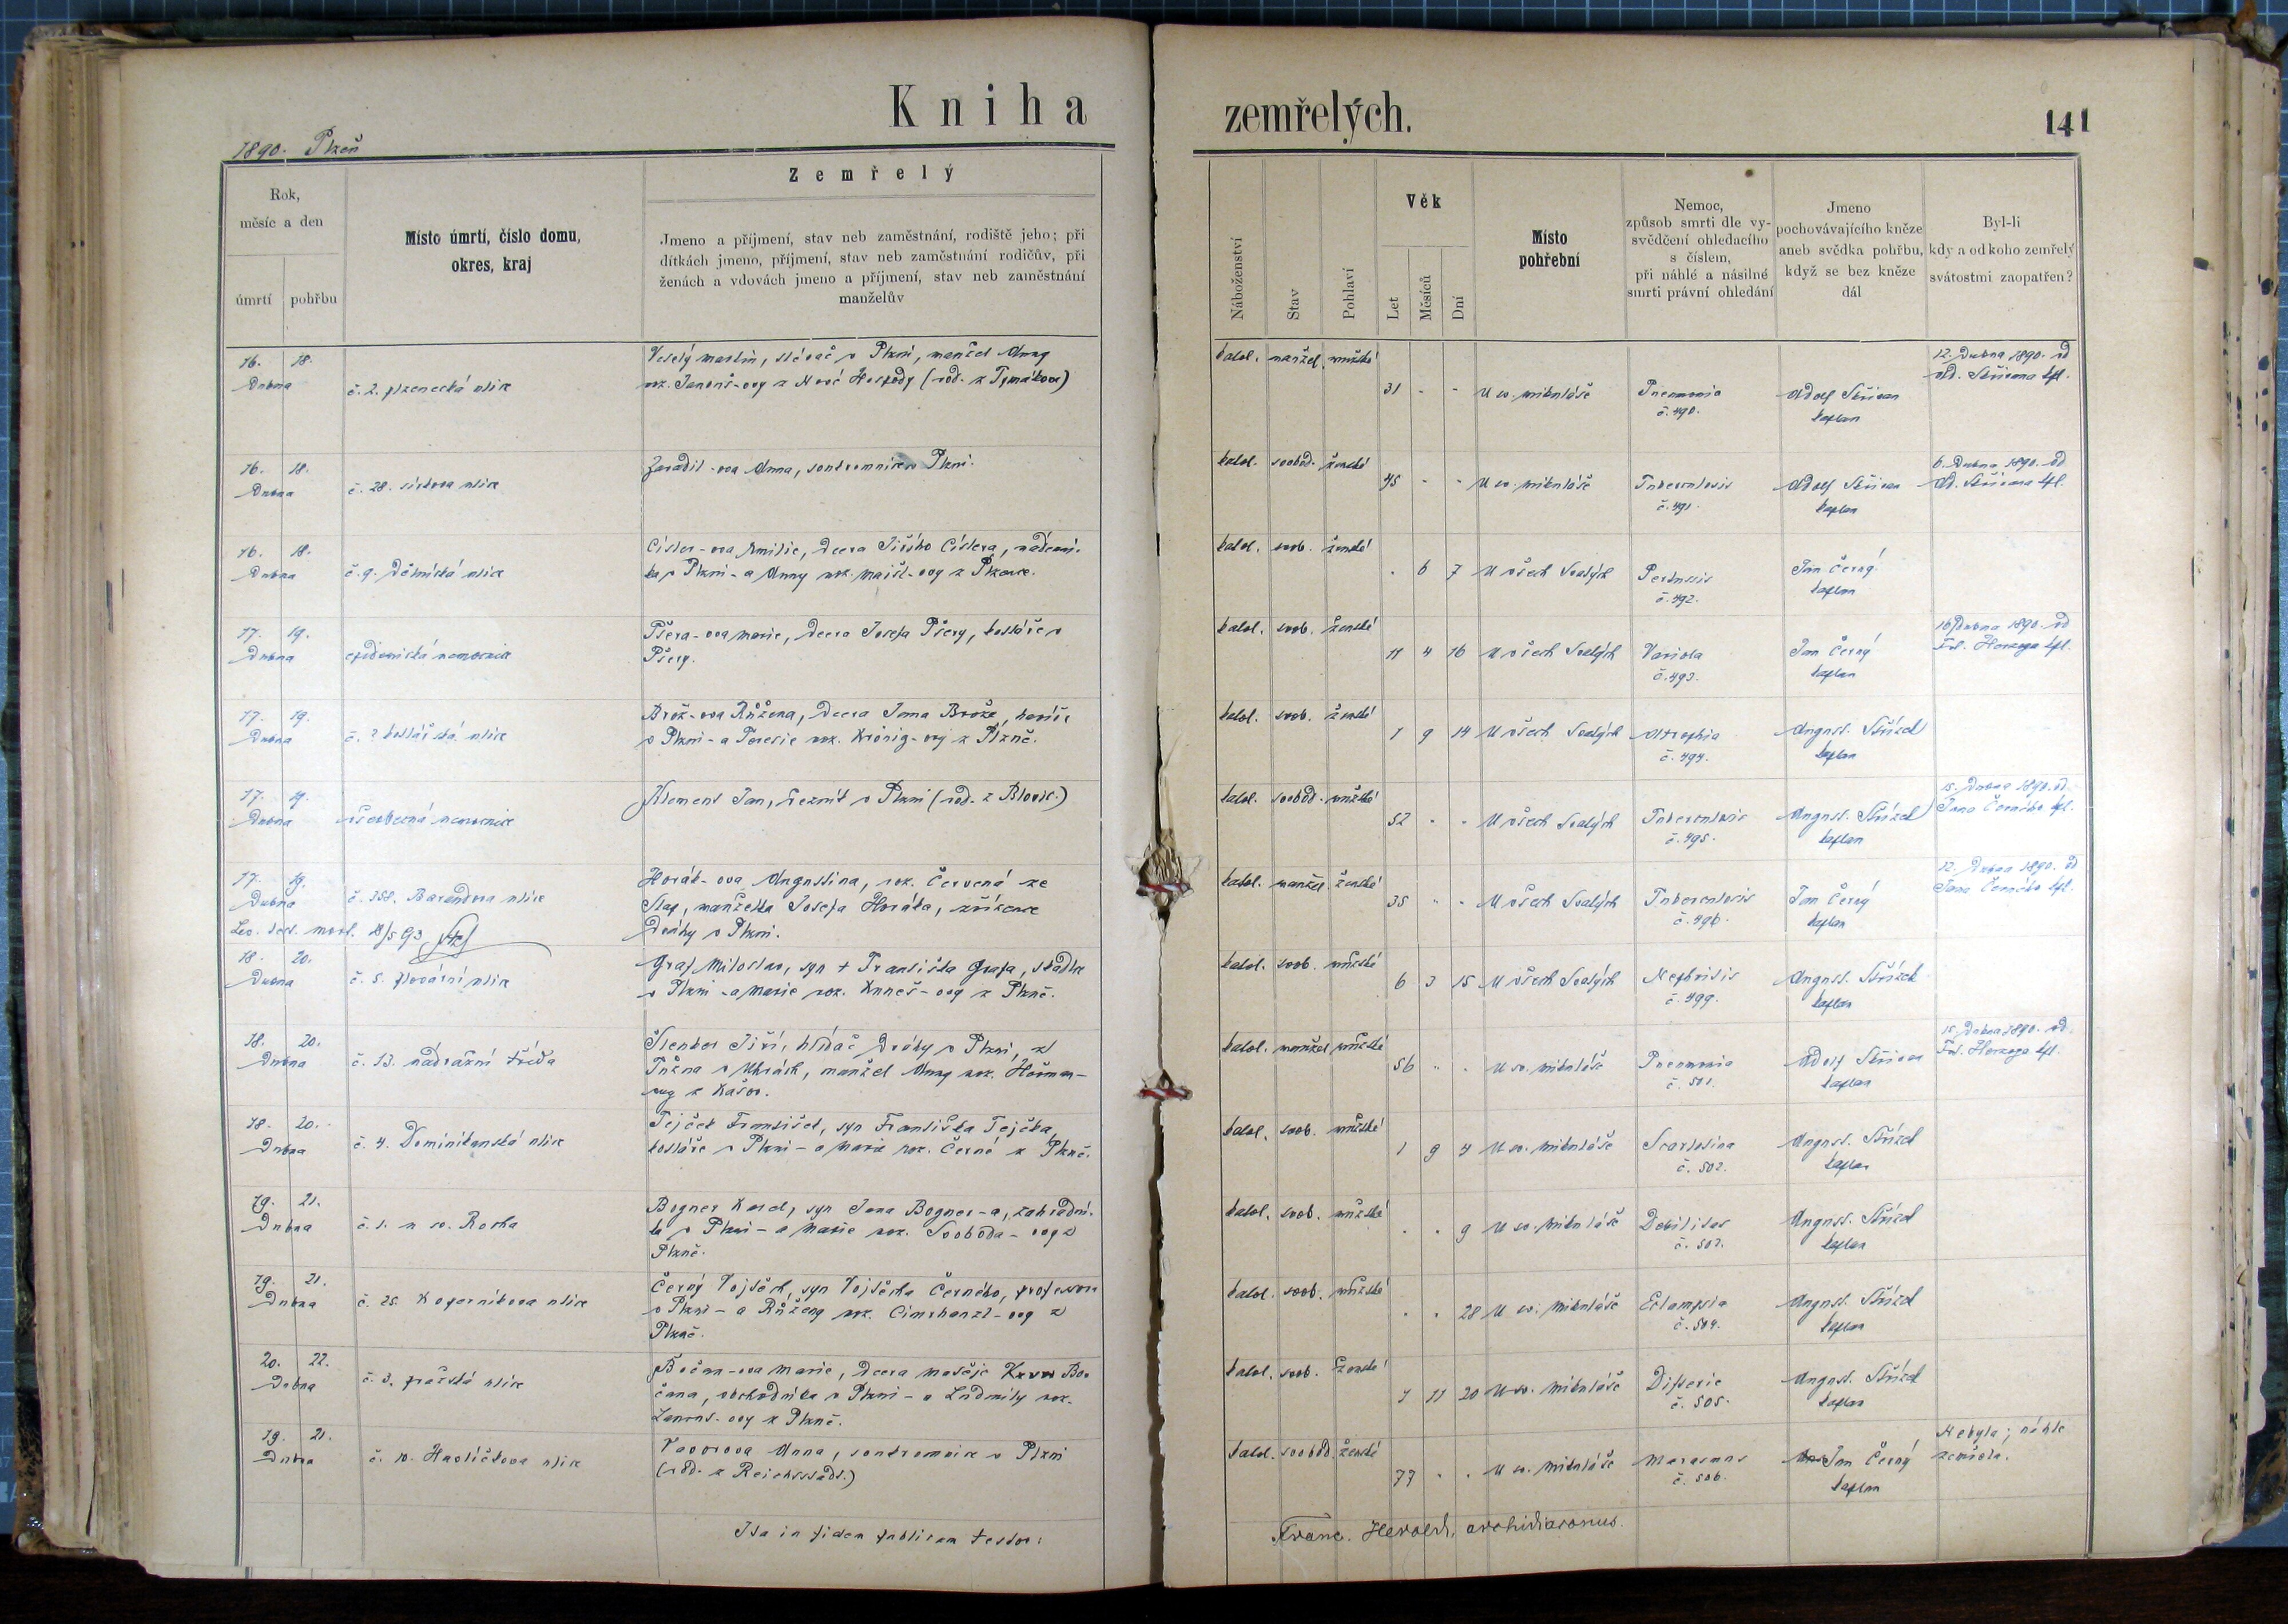 Kniha zemřelých.
141
1890. Plzeň
Zemřelý
Rok,
měsíc a den
úmrtí
pohřbu
Místo úmrtí, číslo domu,
okres, kraj
Jmeno a příjmení, stav neb zaměstnání, rodiště jeho; při
dítkách jmeno, příjmení, stav neb zaměstnání rodičův, při
ženách a vdovách jmeno a příjmení, stav neb zaměstnání
manželův
Náboženství
Stav
Pohlaví
Věk
Let
Měsíců
Dní
Místo
pohřební
Nemoc,
způsob smrti dle vy-
svědčení ohledacího
s číslem,
při náhlé a násilné
smrti právní ohledání
Jmeno
pochovávajícího kněze
aneb svědka pohřbu,
když se bez kněze
dál
Byl-li
kdy a od koho zemřelý
svátostmi zaopatřen?
16. 18.
Dubna
č. 2. plzenecká ulice
Veselý Martin, slévač v Plzni, manžel Anny
roz. Janouš-ovy z Nové Hospody (rod. z Tymákova)
katol. manžel. mužské
31 - - U sv. Mikuláše
Pneumonia
č. 490.
Adolf Skřivan
kaplan
12. Dubna 1890. od
Ad. Skřivana kpl.
16. 18.
Dubna
č. 28. sirková ulice
Zavadil-ova Anna, soukromnice v Plzni.
katol. svobod. ženské
45 - - U sv. Mikuláše
Tuberculosis
č. 491.
Adolf Skřivan
kaplan
6. Dubna 1890. od
Ad. Skřivana kpl.
16. 18.
Dubna
č. 9. Dělnická ulice
Císler-ova Emilie, dcera Jiřího Císlera, nádenní-
ka v Plzni - a Anny roz. Maišl-ovy z Plzence.
katol. svob. ženské
- 6 7 U všech Svatých
Pertussis
č. 492.
Jan Černý
kaplan
17. 19.
Dubna
epidemická nemocnice
Pšera-ova Marie, dcera Josefa Pšery, kotláře v
katol. svob. ženské
11 4 16 U všech Svatých
Variola
č. 493.
Jan Černý
kaplan
16. Dubna 1890. od
Fr. Herzoga kpl.
17. 19.
Dubna
č. 2 kotlářská ulice
Brož-ova Růžena, dcera Jana Brože,
v Plzni - a Terezie roz. König-ovy z Plzně.
katol. svob. ženské
1 9 14 U všech Svatých
Atrophia
č. 494.
August. Střízek
kaplan
17. 19.
Dubna
všeobecná nemocnice
Klement Jan, řezník v Plzni (rod. z Blovic.)
katol. svobod. mužské
52 - - U všech Svatých
Tuberculosis
č. 495.
August. Střízek
kaplan
15. Dubna 1890. od
Jana Černého kpl.
17. 19.
Dubna
č. 358. Barandova ulice
Horák-ova Augustina, roz. Červená ze
Slap, manželka Josefa Horáka, zřízence
Dráhy v Plzni.
katol. manžel ženské
35 - - U všech Svatých
Tuberculosis
č. 496.
Jan Černý
kaplan
12. Dubna 1890. od
Jana Černého kpl.
18. 20.
Dubna
č. 5. plovární ulice
Graf Miloslav, syn + Františka Grafa, sládka
v Plzni - a Marie roz. Kuneš-ovy z Plzně.
katol. svob. mužské
6 3 15 U všech Svatých
Nephritis
č. 499.
August. Střízek
kaplan
18. 20.
Dubna
č. 13. nádražní třída
Jiří, hlídač Dráhy v Plzni, z
manžel Anny roz. Heřman-
ovy z
katol. manžel mužské
56 - - U sv. Mikuláše
Pneumonia
č. 501.
Adolf Skřivan
kaplan
15. Dubna 1890. od
Fr. Herzoga kpl.
18. 20.
Dubna
č. 4. Dominikanská ulice
Tejček František, syn Františka Tejčka,
kotláře v Plzni - a Marie roz. Černé z Plzně.
katol. svob. mužské
1 9 4 U sv. Mikuláše
Scarlatina
č. 502.
August. Střízek
kaplan
19. 21.
Dubna
č. 1. u sv. Rocha
Bogner Karel, syn Jana Bogner-a, zahradní-
ka v Plzni - a Marie roz. Svoboda-ovy z
Plzně.
katol. svob. mužské
- - 9 U sv. Mikuláše
Debilitas
č. 503.
August. Střízek
kaplan
19. 21.
Dubna
č. 25. Kopernikova ulice
Černý Vojtěch, syn Vojtěcha Černého, profesora
v Plzni - a Růženy roz. Cimrhanzl-ovy z
Plzně.
katol. svob. mužské
- - 28 U sv. Mikuláše
Eclampsia
č. 504.
August. Střízek
kaplan
20. 22.
Dubna
č. 3. pražská ulice
Bočan-ova Marie, dcera Matěje Bo-
čana, obchodníka v Plzni - a Ludmily roz.
z Plzně.
katol. svob. ženské
11 20 U sv. Mikuláše
Difterie
č. 505.
August. Střízek
kaplan
19. 21.
Dubna
č. 10. Havlíčkova ulice
Vavrova Anna, soukromnice v Plzni
(rod. z Reichsstadt.)
katol. svobod. ženské
77 - - U sv. Mikuláše
Marasmus
č. 506.
Jan Černý
kaplan
Nebyla; náhle
zemřela.
Ita in fidem publicam testor:
Franc. Herold, archidiaconus.